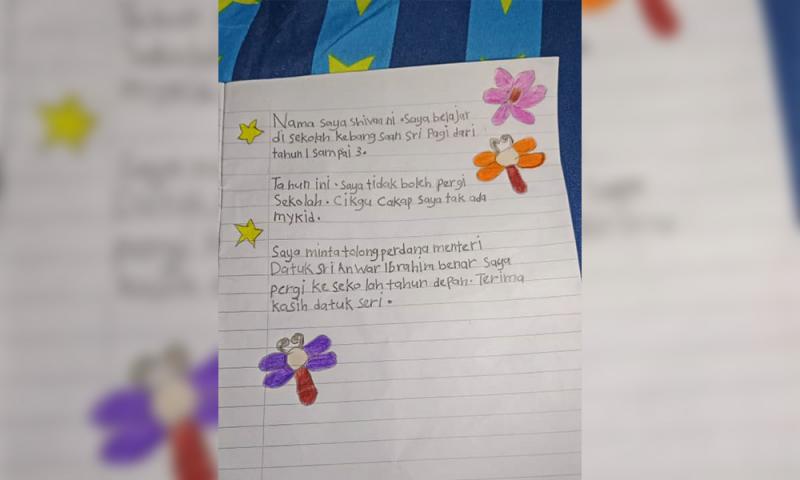 Nama saya shivaani. Saya belajar
di sekolah kebangsaan Sri Pagi dari
tahun 1 sampai 3.
Tahun ini. saya tidak boleh pergi
Sekolah. Cikgu Cakap saya tak ada
mykid.
Saya minta tolong perdana menteri
Datuk Sri Anwar Ibrahim benar saya
pergi ke sekolah tahun depan. Terima
kasih datuk seri.